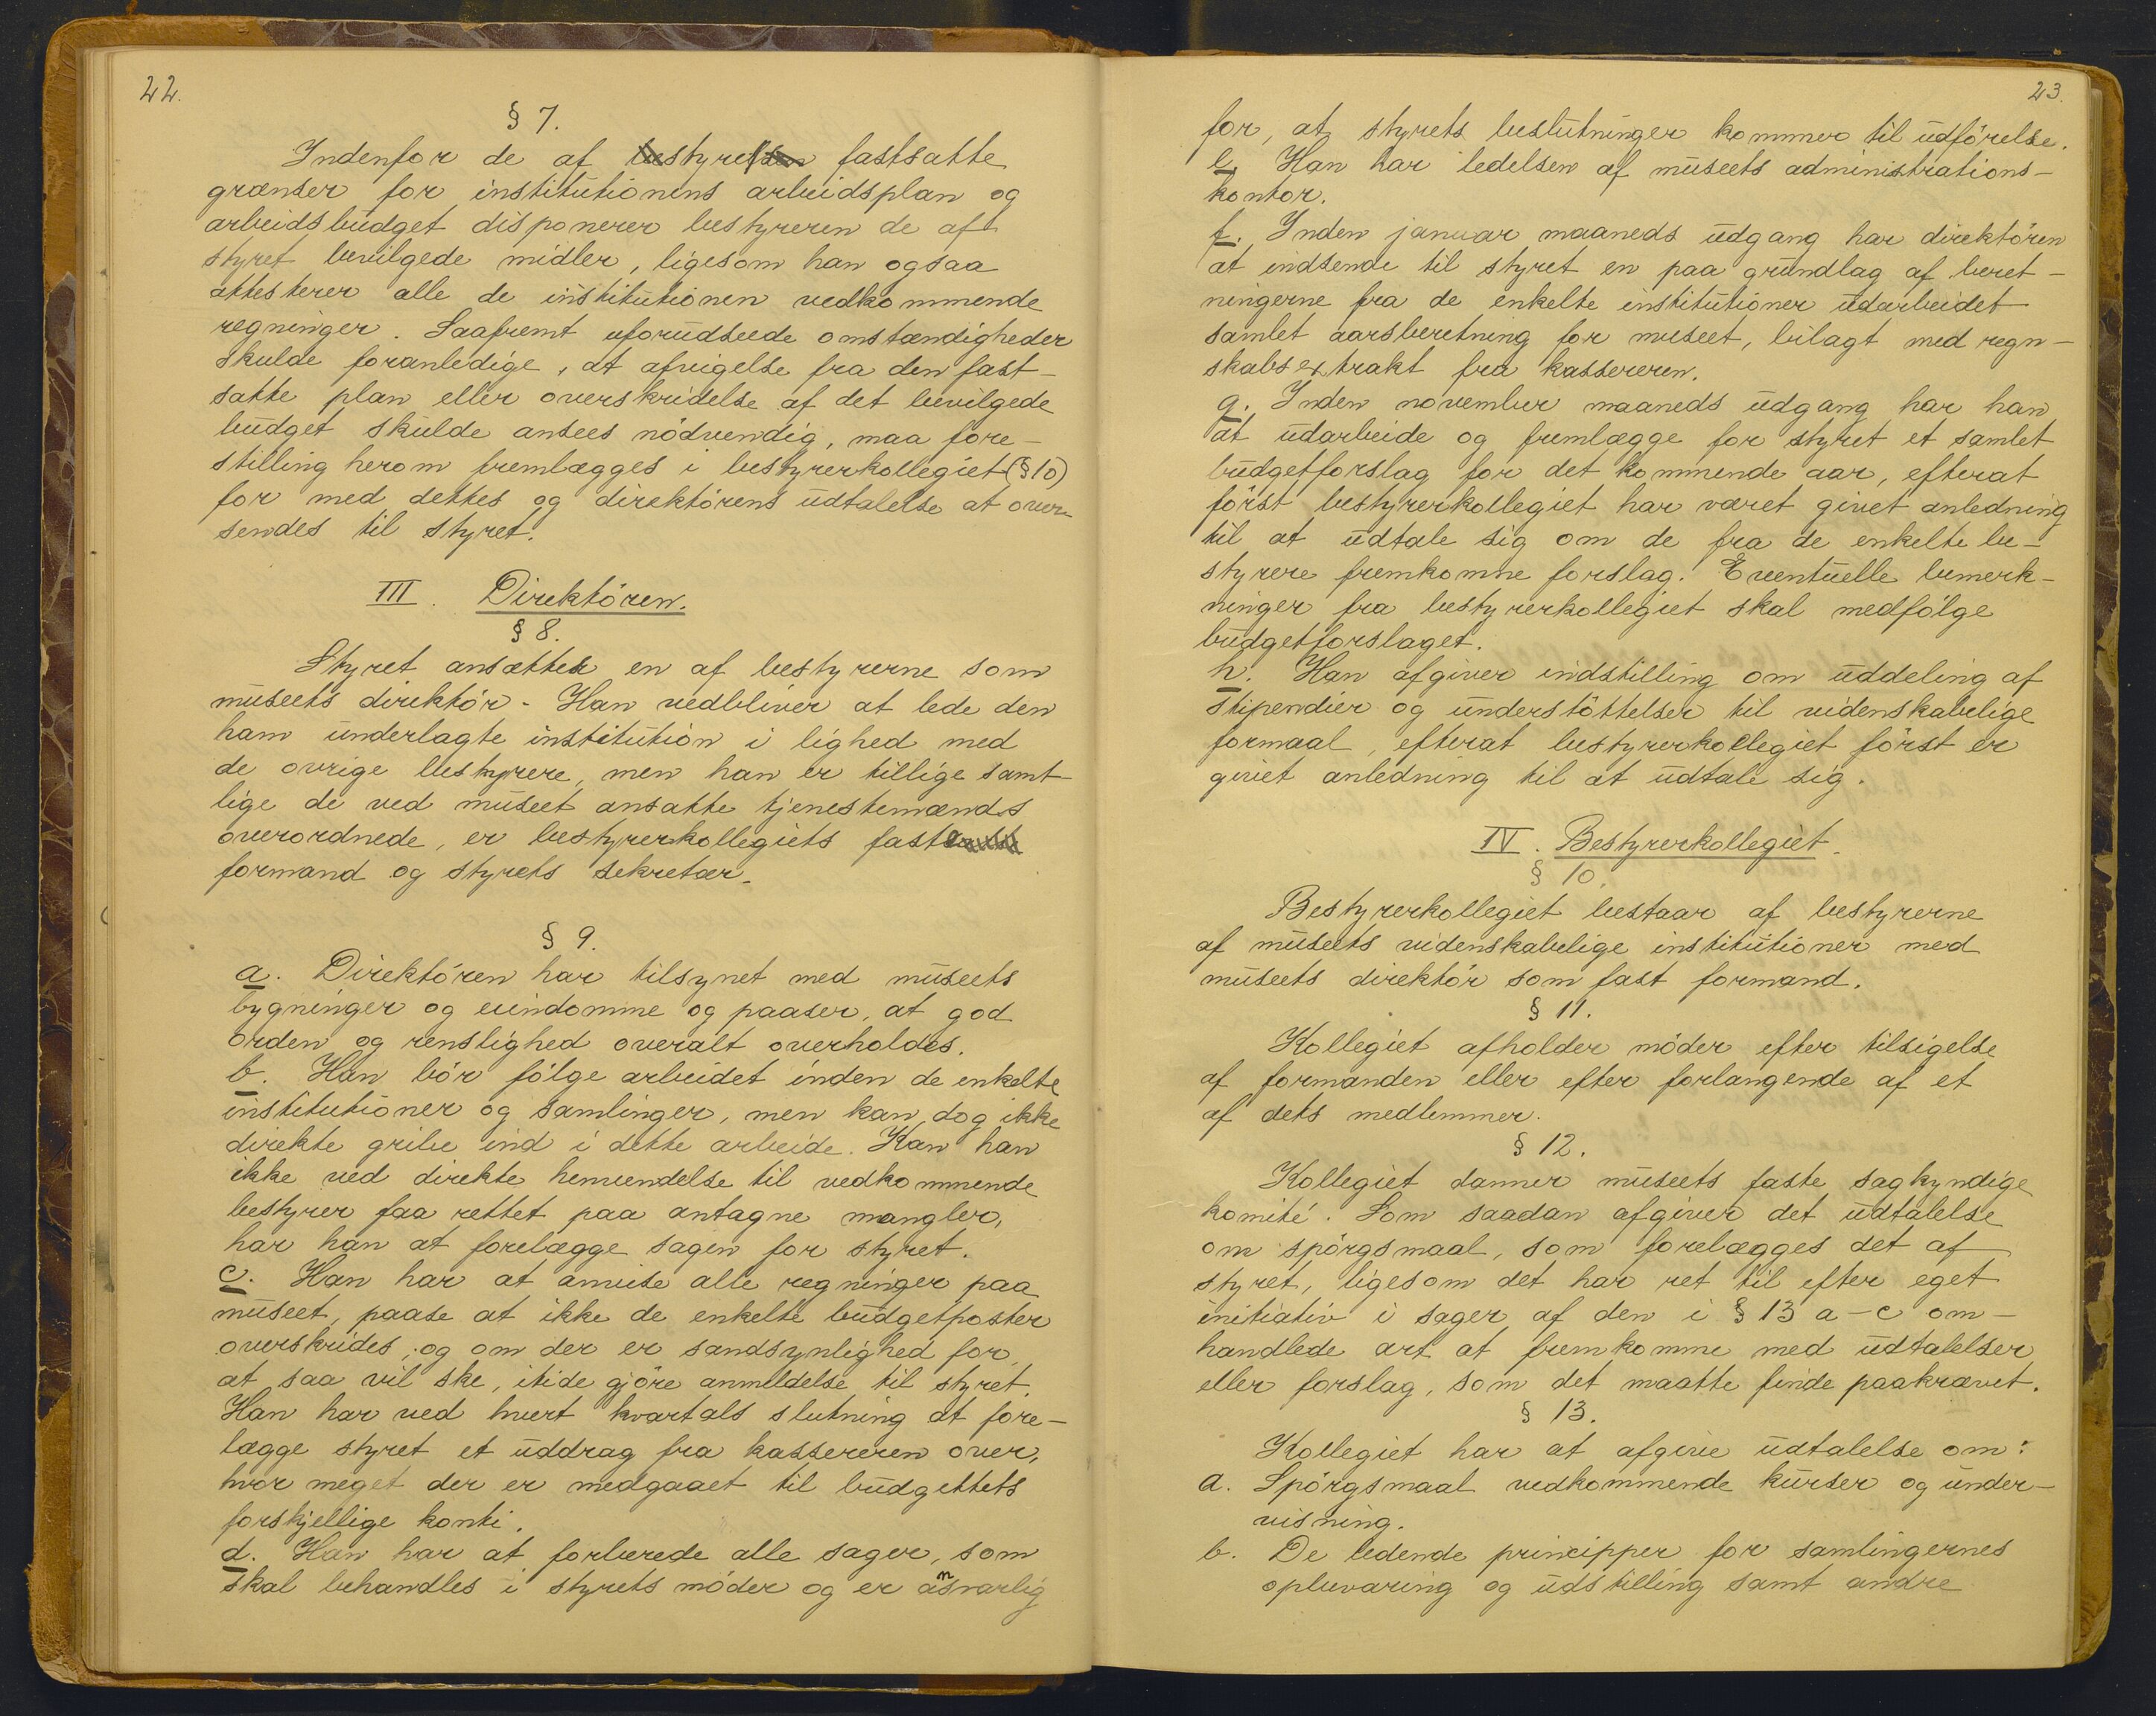 22.
§ 7.
Indenfor de af styret fastsatte
grænser for institutionens arbeidsplan og
arbeidsbudget disponerer bestyreren de af
styret bevilgede midler, ligesom han ogsaa
attesterer alle de institutionen vedkommende
regninger. Saafremt uforudseede omstændigheder
skulde foranledige, at afvigelse fra den fast-
satte plan eller overskridelse af det bevilgede
budget skulde ansees nödvendig, maa fore-
stilling herom fremlægges i bestyrerkollegiet (§ 10)
for med dettes og direktörens udtalelse at over-
sendes til styret.
III. Direktören.
§ 8.
Styret ansætter en af bestyrerne som
museets direktör. Han vedbliver at lede den
ham underlagte institution i lighed med
de ovrige bestyrere, men han er tillige samt-
lige de ved museet ansatte tjenestemænds
overordnede, er bestyrerkollegiets fast
formand og styrets sekretær.
§ 9.
a. Direktören har tilsynet med museets
bygninger og eiendomme og paaser, at god
orden og renslighed overalt overholdes.
b. Han bör fölge arbeidet inden de enkelte
institutioner og samlinger, men kan dog ikke
direkte gribe ind i dette arbeide. Kan han
ikke ved direkte henvendelse til vedkommende
bestyrer faa rettet paa antagne mangler,
har han at forelægge sagen for styret.
c. Han har at anvise alle regninger paa
museet, paase at ikke de enkelte budgetposter
overskrides, og om der er sandsynlighed for,
at saa vil ske, itide gjöre anmeldelse til styret.
Han har ved hvert kvartals slutning at fore-
lægge styret et uddrag fra kassereren over,
hvor meget der er medgaaet til budgettets
forskjellige konti.
d. Han har at forberede alle sager, som
skal behandles i styrets möder og er ansvarlig
23.
for, at styrets beslutninger kommer til udförelse.
e. Han har ledelsen af museets administrations-
kontor.
f. Inden januar maaneds udgang har direktören
at indsende til styret en paa grundlag af beret-
ningerne fra de enkelte institutioner udarbeidet
samlet aarsberetning for museet, bilagt med regn-
skabsextrakt fra kassereren.
g. Inden november maaneds udgang har han
at udarbeide og fremlægge for styret et samlet
budgetforslag for det kommende aar, efterat
först bestyrerkollegiet har været givet anledning
til at udtale sig om de fra de enkelte be-
styrere fremkomne forslag. Eventuelle bemerk-
ninger fra bestyrerkollegiet skal medfölge
budgetforslaget.
h. Han afgiver indstilling om uddeling af
stipendier og understöttelser til videnskabelige
formaal, efterat bestyrerkollegiet först er
givet anledning til at udtale sig.
IV. Bestyrerkollegiet.
§ 10.
Bestyrerkollegiet bestaar af bestyrerne
af museets videnskabelige institutioner med
museets direktör som fast formand.
§ 11.
Kollegiet afholder möder efter tilsigelse
af formanden eller efter forlangende af et
af dets medlemmer.
§ 12.
Kollegiet danner museets faste sagkyndige
komité. Som saadan afgiver det udtalelse
om spörgsmaal, som forelægges det af
styret, ligesom det har ret til efter eget
initiativ i sager af den i § 13 a-c om-
handlede art at fremkomme med udtalelser
eller forslag, som det maatte finde paakrævet.
§ 13.
Kollegiet har at afgive udtalelse om:
a. Spörgsmaal vedkommende kurser og under-
visning.
b. De ledende principper for samlingernes
opbevaring og udstilling samt andre